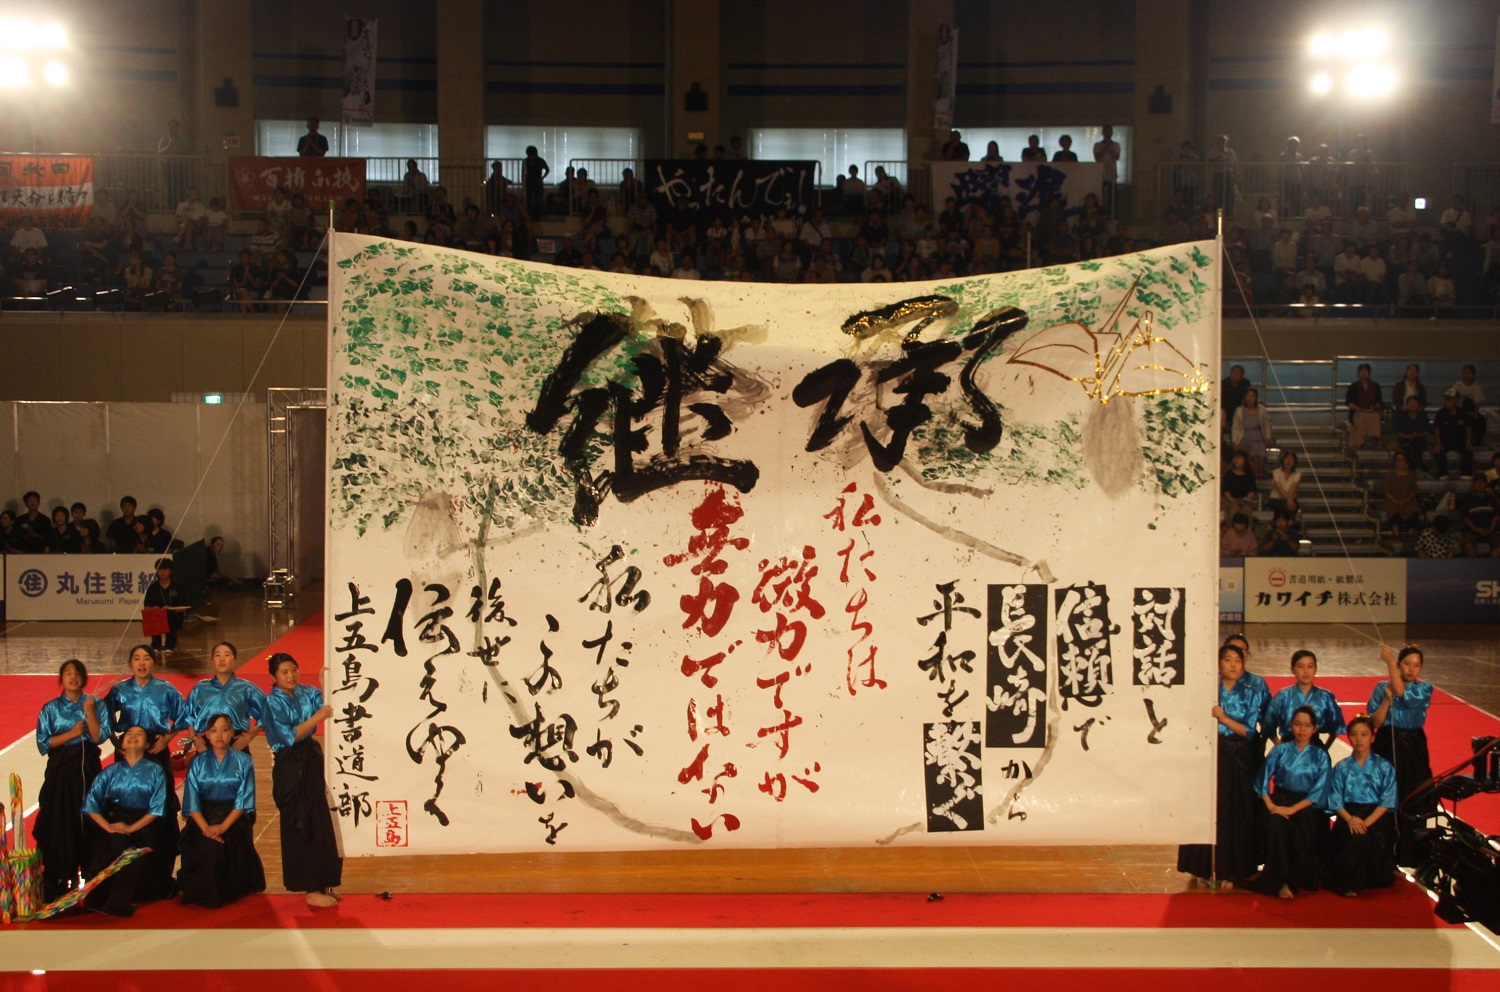 継承
対話と
信頼で
長崎から
平和を繋ぐ
私たちは
微力ですが
無力ではない
私たちが
この想いを
後世に
伝えゆく
上五島書道部
上五島
百折不撓
やったんでぇ!
躍進
丸住製紙
Marusumi Paper
書道用紙・紙製品
カワイチ株式会社